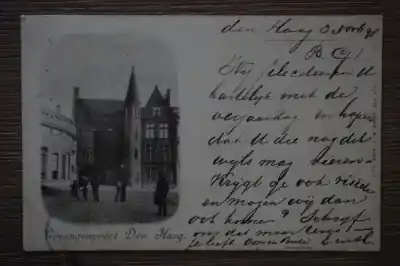 den Haag 3 Novb 98
B. C.!
Wij feliciteeren U
hartelijk met de
verjaardag en hopen
dat U die nog dik
wijls mag vieren.
Krijgt ge ook visite
en mogen wij dan
ook komen? Schrijf
ons dat maar eens
je liefh
Gevangenpoort Den Haag.